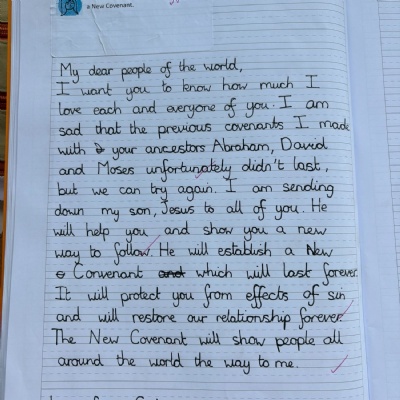 a New Covenant.
My dear people of the world,
I want you to know how much I
love each and everyone of you. I am
sad that the previous covenants I made
with your ancestors Abraham, David
and Moses unfortunately didn't last,
but we can try again. I am sending
down my son, Jesus to all of you. He
will help you and show you a new
way to follow. He will establish a New
Convenant and which will last forever.
It will protect you from effects of sin
and will restore our relationship forever.
The New Covenant will show people all
around the world the way to me.